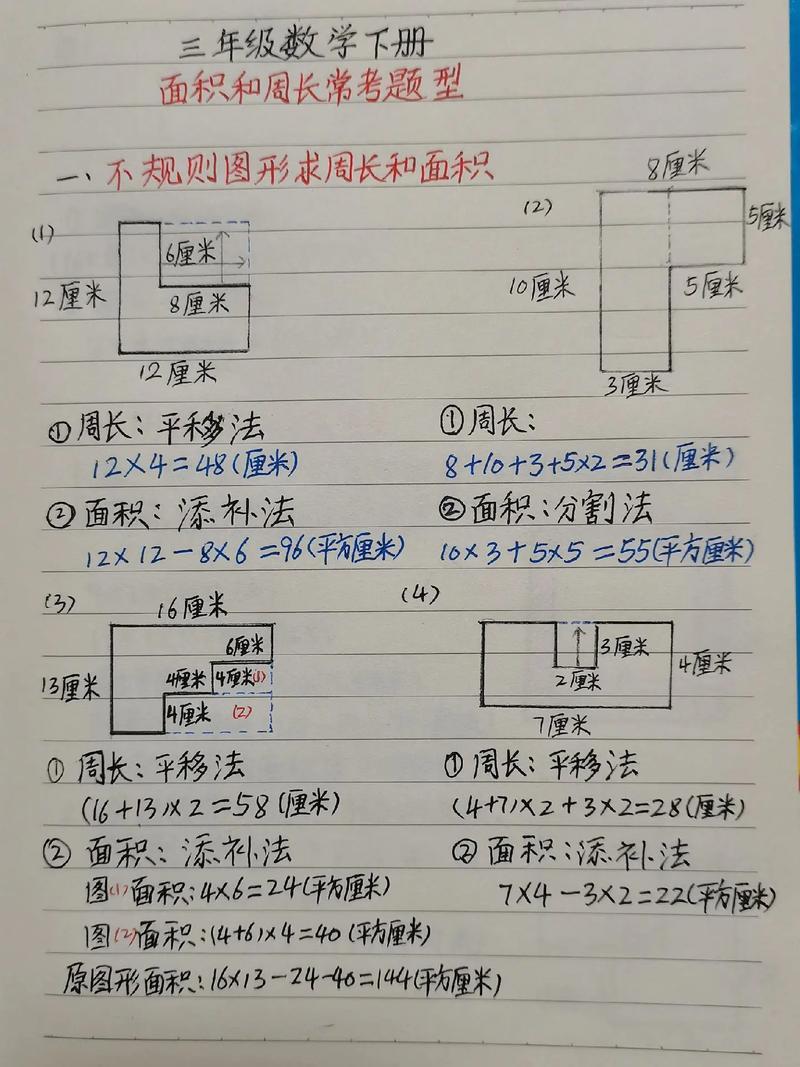 三年级数学下册
面积和周长常考题型
一、不规则图形求周长和面积
(1)
6厘米
12厘米
8厘米
12厘米
(2)
8厘米
5厘米
10厘米
5厘米
3厘米
①周长：平移法
12×4=48(厘米)
②面积：添补法
12×12-8×6=96(平方厘米)
①周长：
8+10+3+5×2=31(厘米)
②面积：分割法
10×3+5×5=55(平方厘米)
(3)
16厘米
6厘米
13厘米
4厘米
4厘米(1)
4厘米
(2)
(4)
3厘米
4厘米
2厘米
7厘米
①周长：平移法
(16+13)×2=58(厘米)
②面积：添补法
图(1)面积：4×6=24(平方厘米)
图(2)面积：(4+6)×4=40(平方厘米)
原图形面积：16×13-24-40=144(平方厘米)
①周长：平移法
(4+7)×2+3×2=28(厘米)
②面积：添补法
7×4-3×2=22(平方厘米)